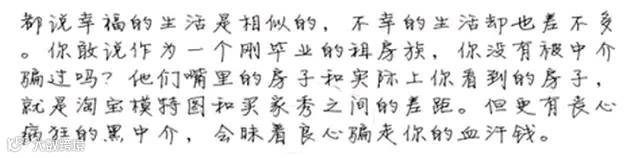 都说幸福的生活是相似的，不幸的生活却也差不多
。你敢说作为一个刚毕业的租房族，你没有被中介
骗过吗？他们嘴里的房子和实际上你看到的房子，
就是淘宝模特图和买家秀之间的差距。但更有丧心
病狂的黑中介，会昧着良心骗走你的血汗钱。